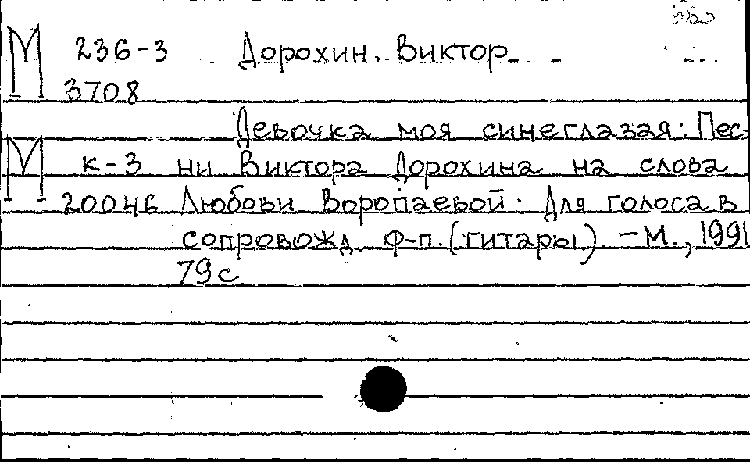 М 236-3 Дорохин. Виктор
3708
Девочка моя синеглазая: Пес-
М к-3 ни Виктора Дорохина на слова
Любови Воропаевой. Для голоса в
сопровожд. ф-п. (гитары). – М., 1991
79 с